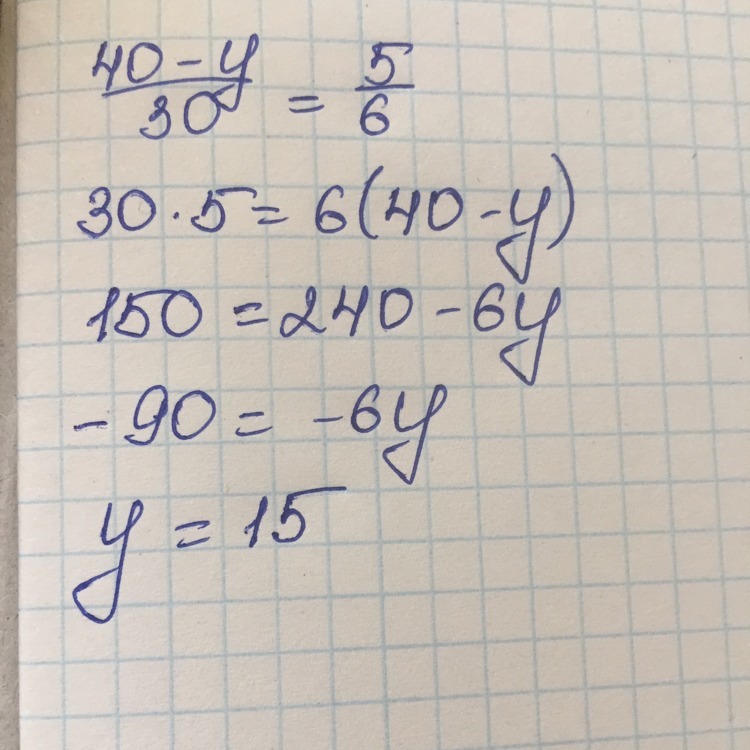 40 - y / 30 = 5 / 6
30 · 5 = 6(40 - y)
150 = 240 - 6y
- 90 = - 6y
y = 15